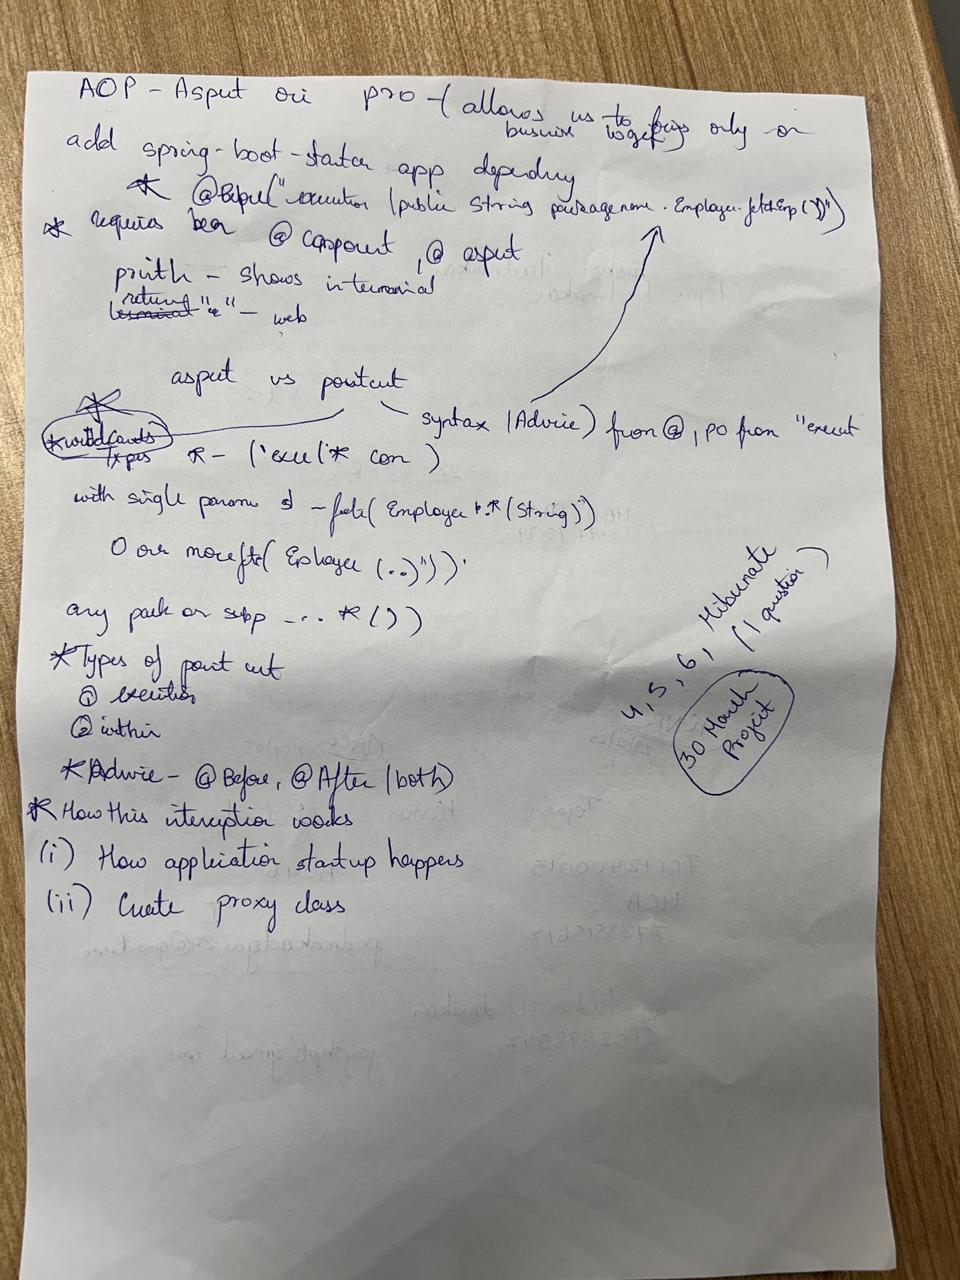 AOP - Asput ori pro - (allows us to focus only on
business logic
add spring-boot-starter app dependncy
* @Before("execution (public String packagename . Employee.fetchEmp())")
* requires bean @ component , @ asput
println - shows in terminal
return
terminal "e" - web
asput vs pointcut
syntax (Advice) from @, po from "execut
* wildcards
Types * - ('exec(* com )
with single param - fetch( Employee .*(String))
0 or more fetc( Employee (..)"))'
any pack or subp ... *())
* Types of point cut
① execution
② within
* Advice - @Before, @After (both)
* How this interception works
(i) How application startup happens
(ii) Create proxy class
4, 5, 6, Hibernate
(1 question)
30 March
Project